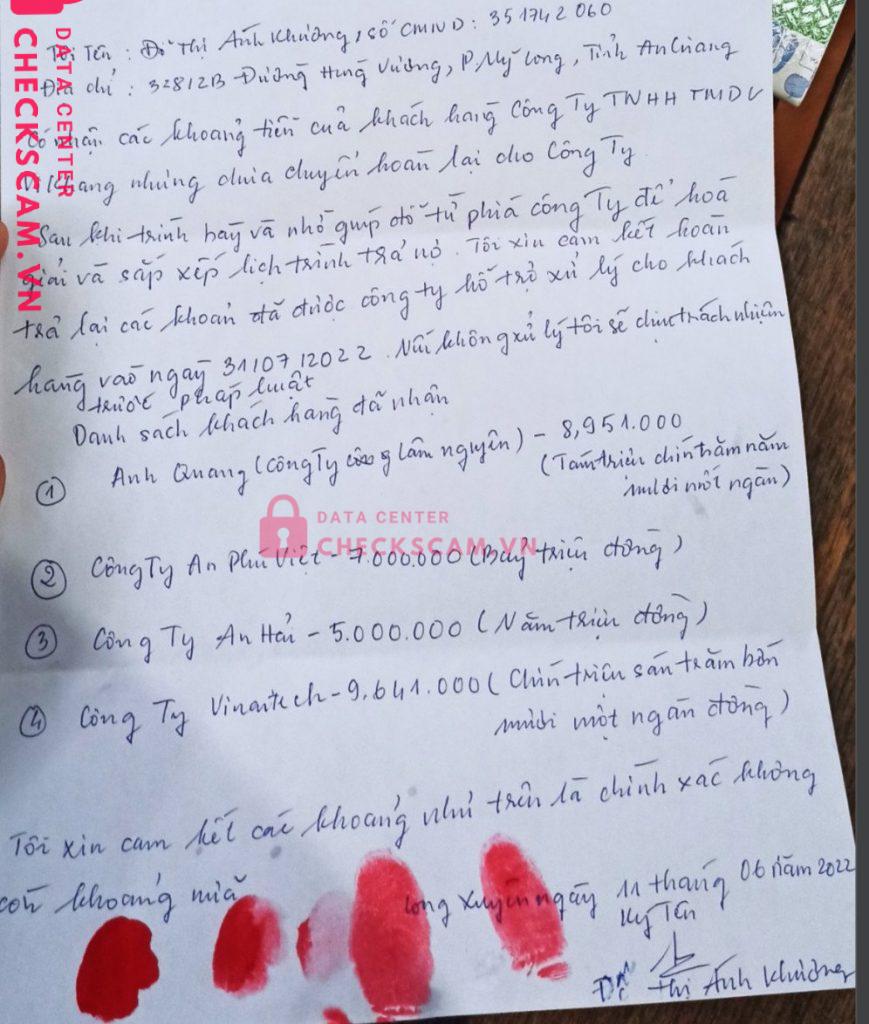 Tôi Tên : Đỗ Thị Ánh Khương, số CMND : 351742060
Địa chỉ : 328/2B Đường Hùng Vương, P. Mỹ Long, Tỉnh An Giang
Có nhận các khoảng tiền của khách hàng Công Ty TNHH TMDV
Vi Khang nhưng chưa chuyển hoàn lại cho Công Ty
Sau khi trình bày và nhờ giúp đỡ từ phía công Ty để hoà
giải và sắp xếp lịch trình trả nợ. Tôi xin cam kết hoàn
trả lại các khoản đã được công ty hỗ trợ xử lý cho khách
hàng vào ngày 31/07/2022. Nếu không xử lý tôi sẽ chịu trách nhiệm
trước pháp luật
Danh sách khách hàng đã nhận
① Anh Quang (Công Ty lâm nguyên) - 8,951.000
(Tám triệu chín trăm năm
mươi một ngàn)
② Công Ty An Phú Việt - 7.000.000 (Bảy triệu đồng)
③ Công Ty An Hải - 5.000.000 (Năm triệu đồng)
④ Công Ty Vinartech - 9.641.000 (Chín triệu sáu trăm bốn
mươi một ngàn đồng)
Tôi xin cam kết các khoảng như trên là chính xác không
còn khoảng nữa
Long Xuyên ngày 11 tháng 06 năm 2022
Ký Tên
Đỗ Thị Ánh Khương
DATA CENTER
CHECKSCAM.VN
DATA CENTER
CHECKSCAM.VN